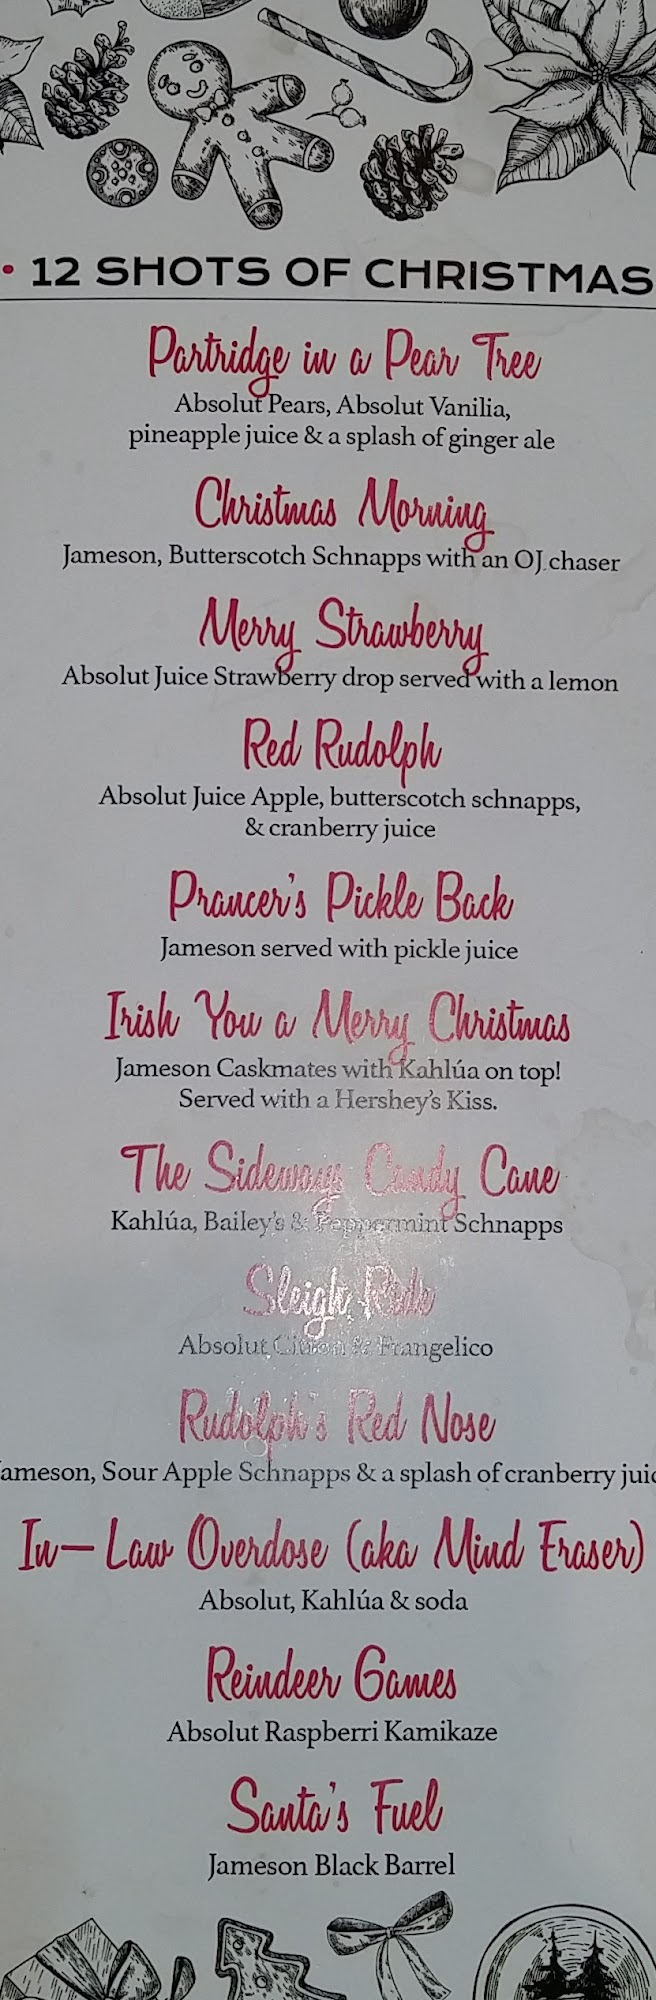 • 12 SHOTS OF CHRISTMAS
Partridge in a Pear Tree
Absolut Pears, Absolut Vanilia,
pineapple juice & a splash of ginger ale
Christmas Morning
Jameson, Butterscotch Schnapps with an OJ chaser
Merry Strawberry
Absolut Juice Strawberry drop served with a lemon
Red Rudolph
Absolut Juice Apple, butterscotch schnapps,
& cranberry juice
Prancer's Pickle Back
Jameson served with pickle juice
Irish You a Merry Christmas
Jameson Caskmates with Kahlúa on top!
Served with a Hershey's Kiss.
The Sideways Candy Cane
Kahlúa, Bailey's & Peppermint Schnapps
Sleigh Ride
Absolut Citron & Frangelico
Rudolph's Red Nose
Jameson, Sour Apple Schnapps & a splash of cranberry juic
In-Law Overdose (aka Mind Eraser)
Absolut, Kahlúa & soda
Reindeer Games
Absolut Raspberri Kamikaze
Santa's Fuel
Jameson Black Barrel